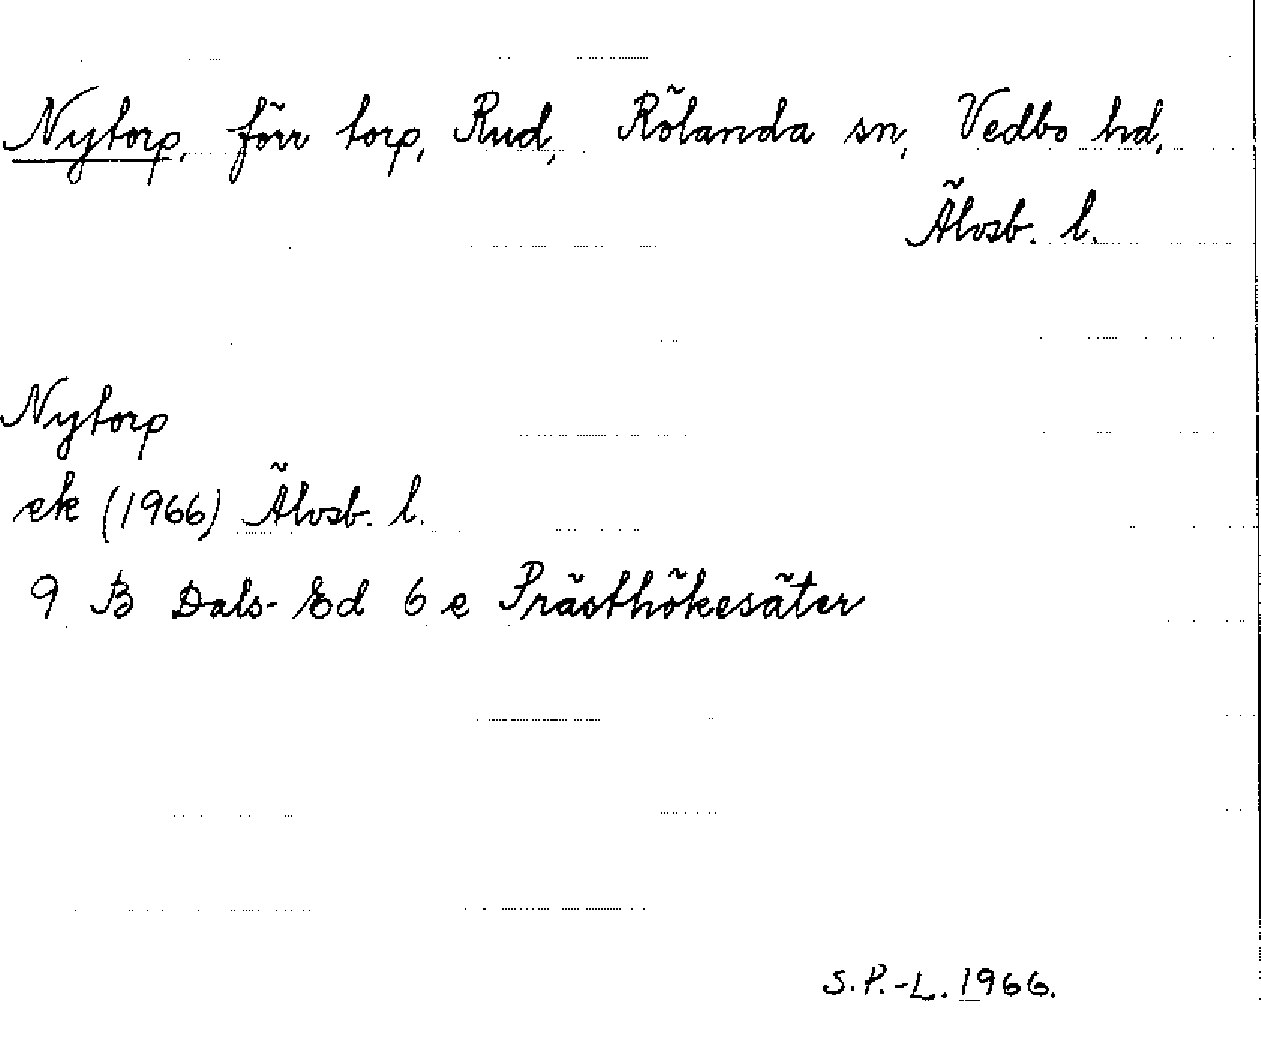 Nytorp, förr torp, Rud, Rölanda sn, Vedbo hd,
Älvsb. l.
Nytorp
ek (1966) Älvsb. l.
9 B Dals-Ed 6 e Prästhökesäter
S.P.-L. 1966.